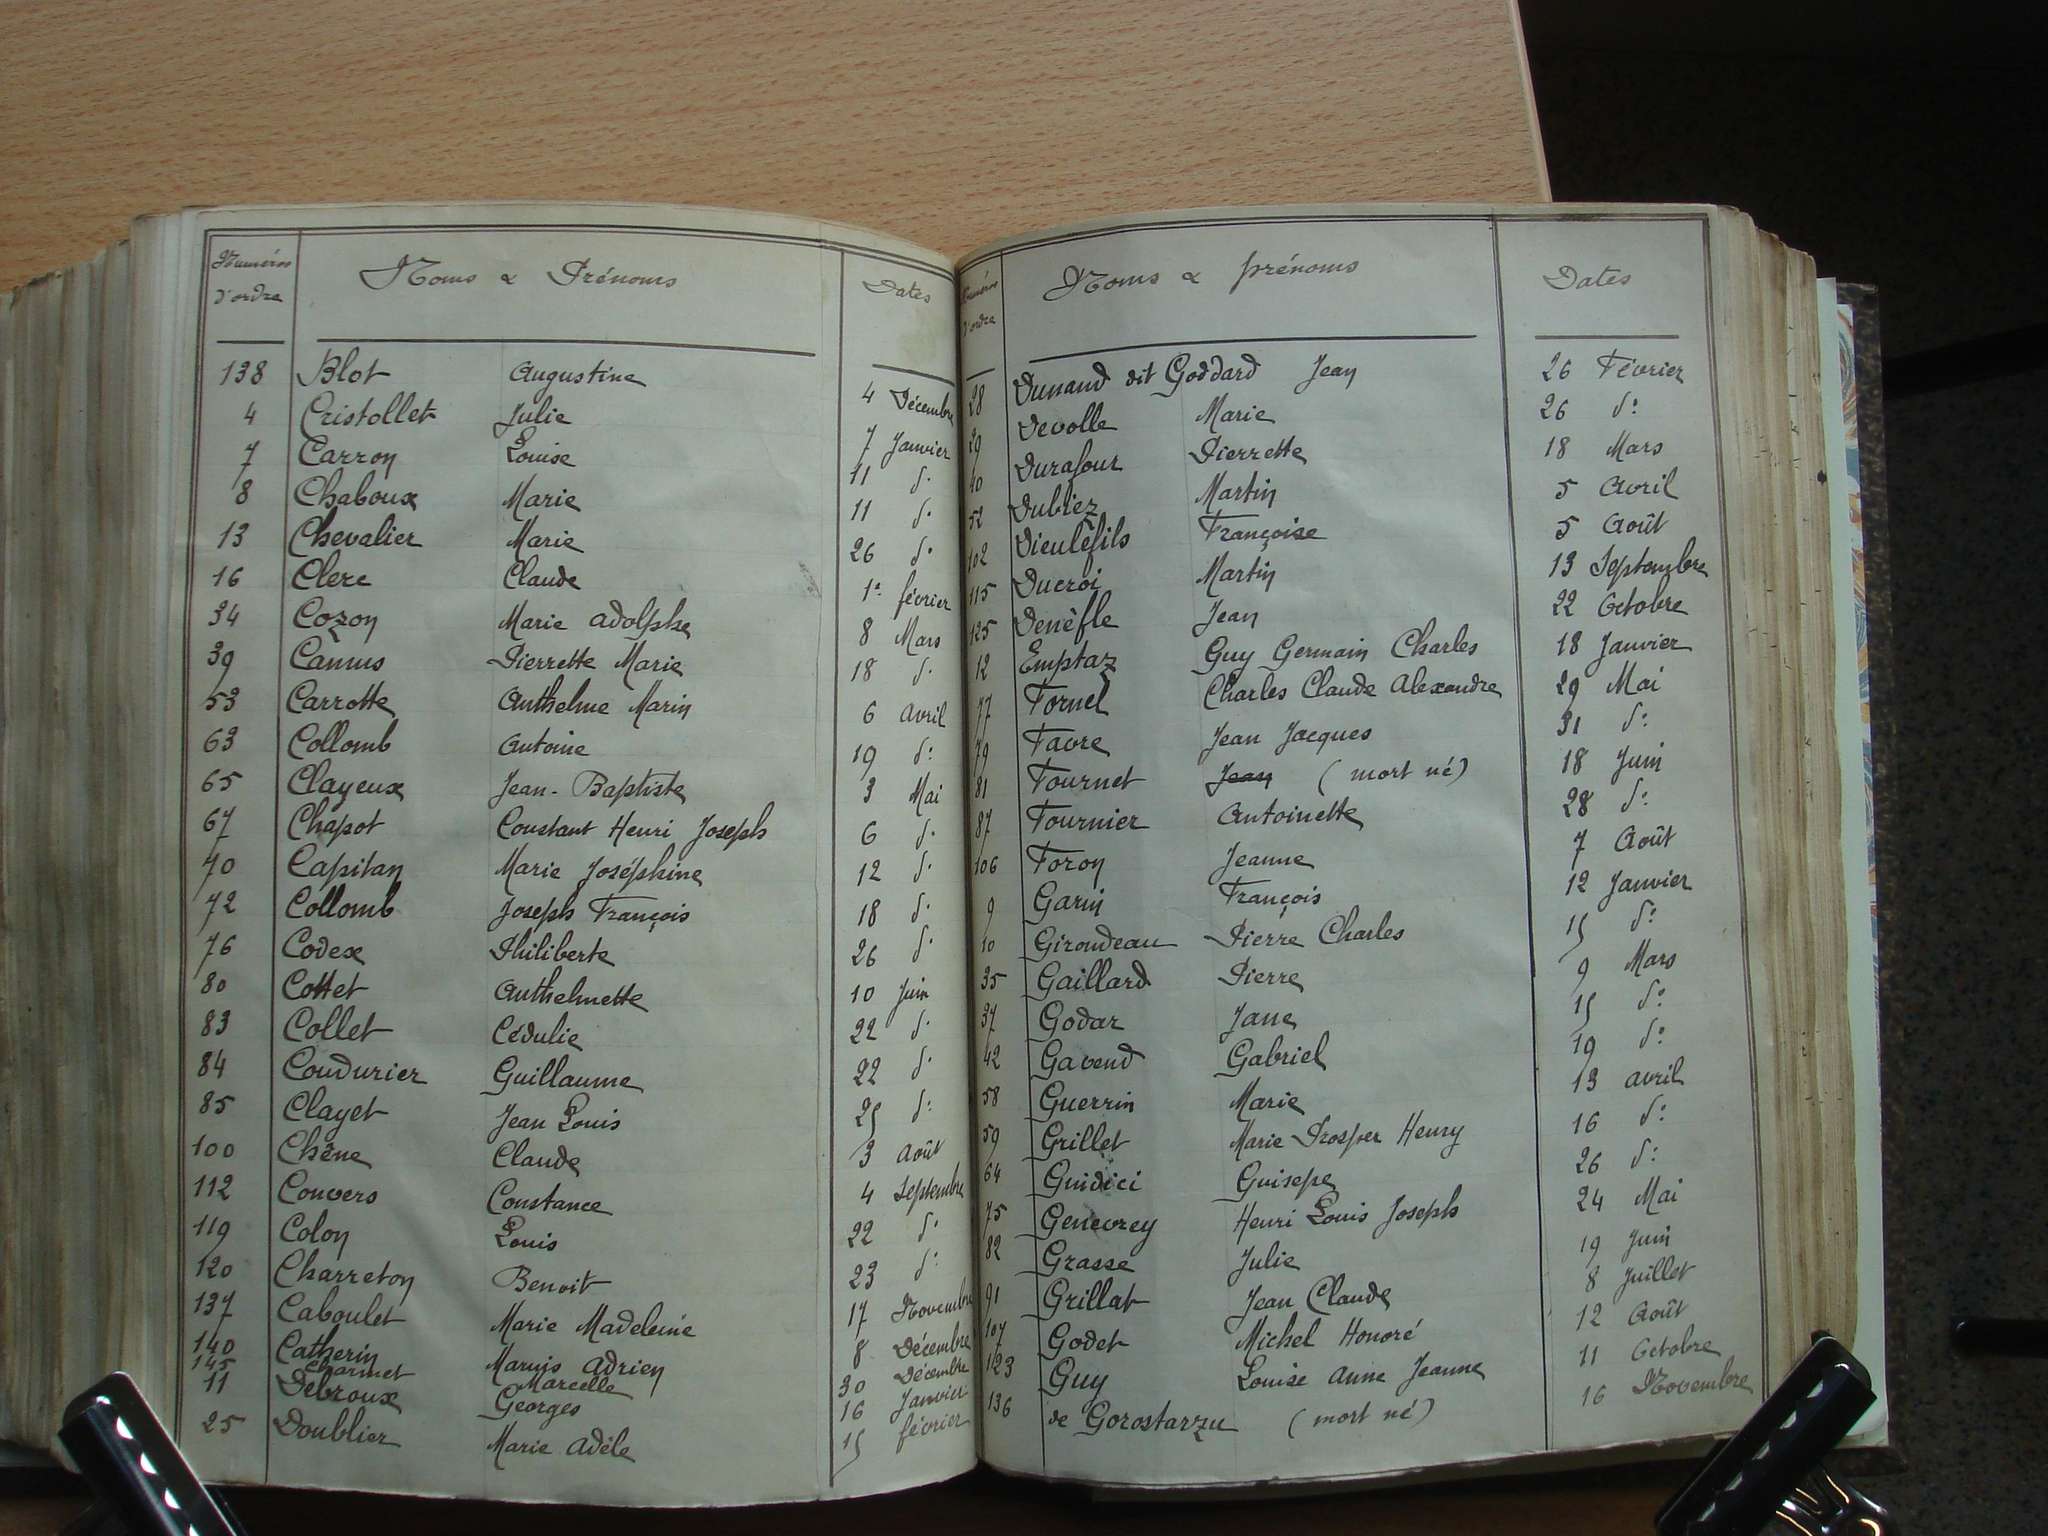 Numéros d'ordre Noms & Prénoms Dates
138 Blot Augustine 4 Décembre
4 Cristollet Julie 7 Janvier
7 Carron Louise 11 do
8 Chaboux Marie 11 do
13 Chevalier Marie 26 do
16 Clerc Claude 1er février
34 Cozon Marie Adolphe 8 Mars
39 Camus Pierrette Marie 18 do
53 Carrotte Anthelme Marin 6 Avril
63 Collomb Antoine 19 do
65 Clayeux Jean-Baptiste 3 Mai
67 Chapot Constant Henri Joseph 6 do
70 Capitan Marie Joséphine 12 do
72 Collomb Joseph François 18 do
76 Codex Philiberte 26 do
80 Cottet Anthelmette 10 Juin
83 Collet Cédulie 22 do
84 Coudurier Guillaume 22 do
85 Clayet Jean Louis 25 do
100 Chêne Claude 3 Août
112 Convers Constance 4 Septembre
119 Colon Louis 22 do
120 Charreton Benoit 23 do
137 Caboulet Marie Madeleine 17 Novembre
140 Catherin Marius Adrien 8 Décembre
145 Charmet Marcelle 30 Décembre
11 Debroux Georges 16 Janvier
25 Doublier Marie Adèle 15 février
Numéros d'ordre Noms & prénoms Dates
28 Dunand dit Goddard Jean 26 Février
29 Devolle Marie 26 do
40 Durafour Pierrette 18 Mars
52 Dubiez Martin 5 Avril
102 Dieulèfils Françoise 5 Août
115 Ducroi Martin 13 Septembre
125 Denèfle Jean 22 Octobre
12 Emptaz Guy Germain Charles 18 Janvier
77 Fornel Charles Claude Alexandre 29 Mai
79 Favre Jean Jacques 31 do
81 Fournet Jean (mort né) 18 Juin
87 Fournier Antoinette 28 do
106 Foron Jeanne 7 Août
9 Garin François 12 Janvier
10 Girondeau Pierre Charles 15 do
35 Gaillard Pierre 9 Mars
37 Godar Jane 15 do
42 Gavend Gabriel 19 do
58 Guerrin Marie 13 Avril
59 Grillet Marie Prosper Henry 16 do
64 Guidici Guisepe 26 do
75 Genevrey Henri Louis Joseph 24 Mai
82 Grasse Julie 19 Juin
91 Grillat Jean Claude 8 Juillet
107 Godet Michel Honoré 12 Août
123 Guy Louise Anne Jeanne 11 Octobre
136 de Gorostarzu (mort né) 16 Novembre